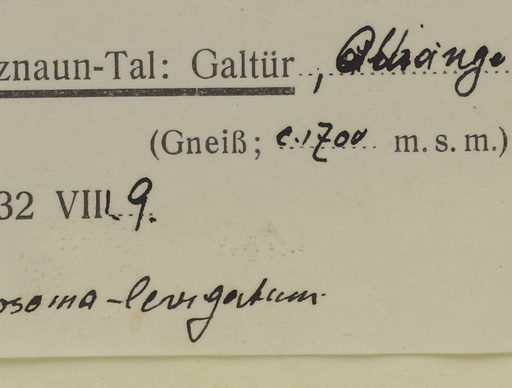 znaun-Tal: Galtür,
(Gneiß; c. 1700 m. s. m.)
32 VIII. 9.
osoma-levigatum